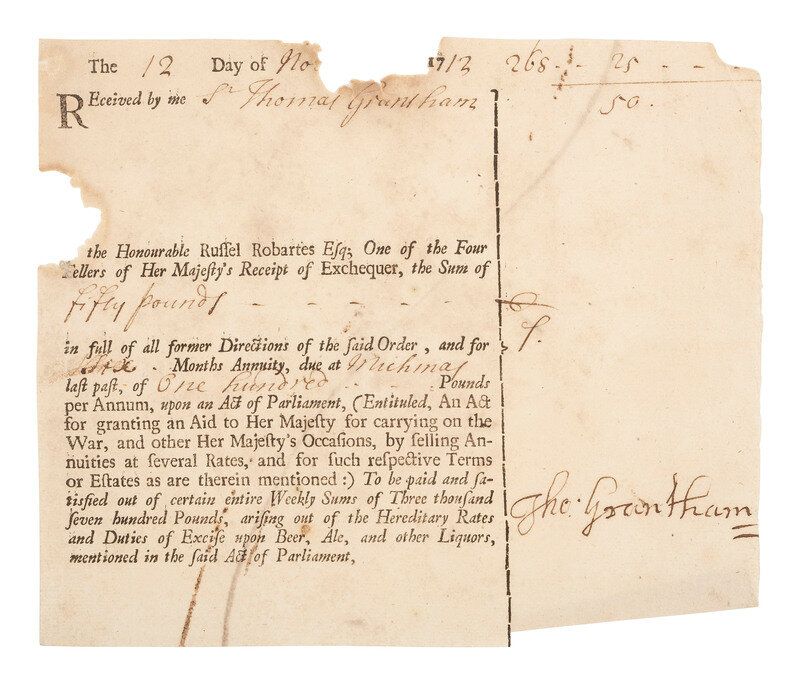 The 12 Day of No 1712 268 - - 25 - - -
REceived by me Sr Thomas Grantham
50 -
the Honourable Ruſſel Robartes Eſq; One of the Four
Tellers of Her Majeſty's Receipt of Exchequer, the Sum of
fifty pounds - - - - - -
in full of all former Directions of the ſaid Order, and for
Six - Months Annuity, due at Michmas
laſt paſt, of One hundred - - - Pounds
per Annum, upon an Act of Parliament, (Entituled, An Act
for granting an Aid to Her Majeſty for carrying on the
War, and other Her Majeſty's Occaſions, by ſelling An-
nuities at ſeveral Rates, and for ſuch reſpective Terms
or Eſtates as are therein mentioned :) To be paid and ſa-
tisfied out of certain entire Weekly Sums of Three thouſand
ſeven hundred Pounds, ariſing out of the Hereditary Rates
and Duties of Exciſe upon Beer, Ale, and other Liquors,
mentioned in the ſaid Act of Parliament,
Tho: Grantham